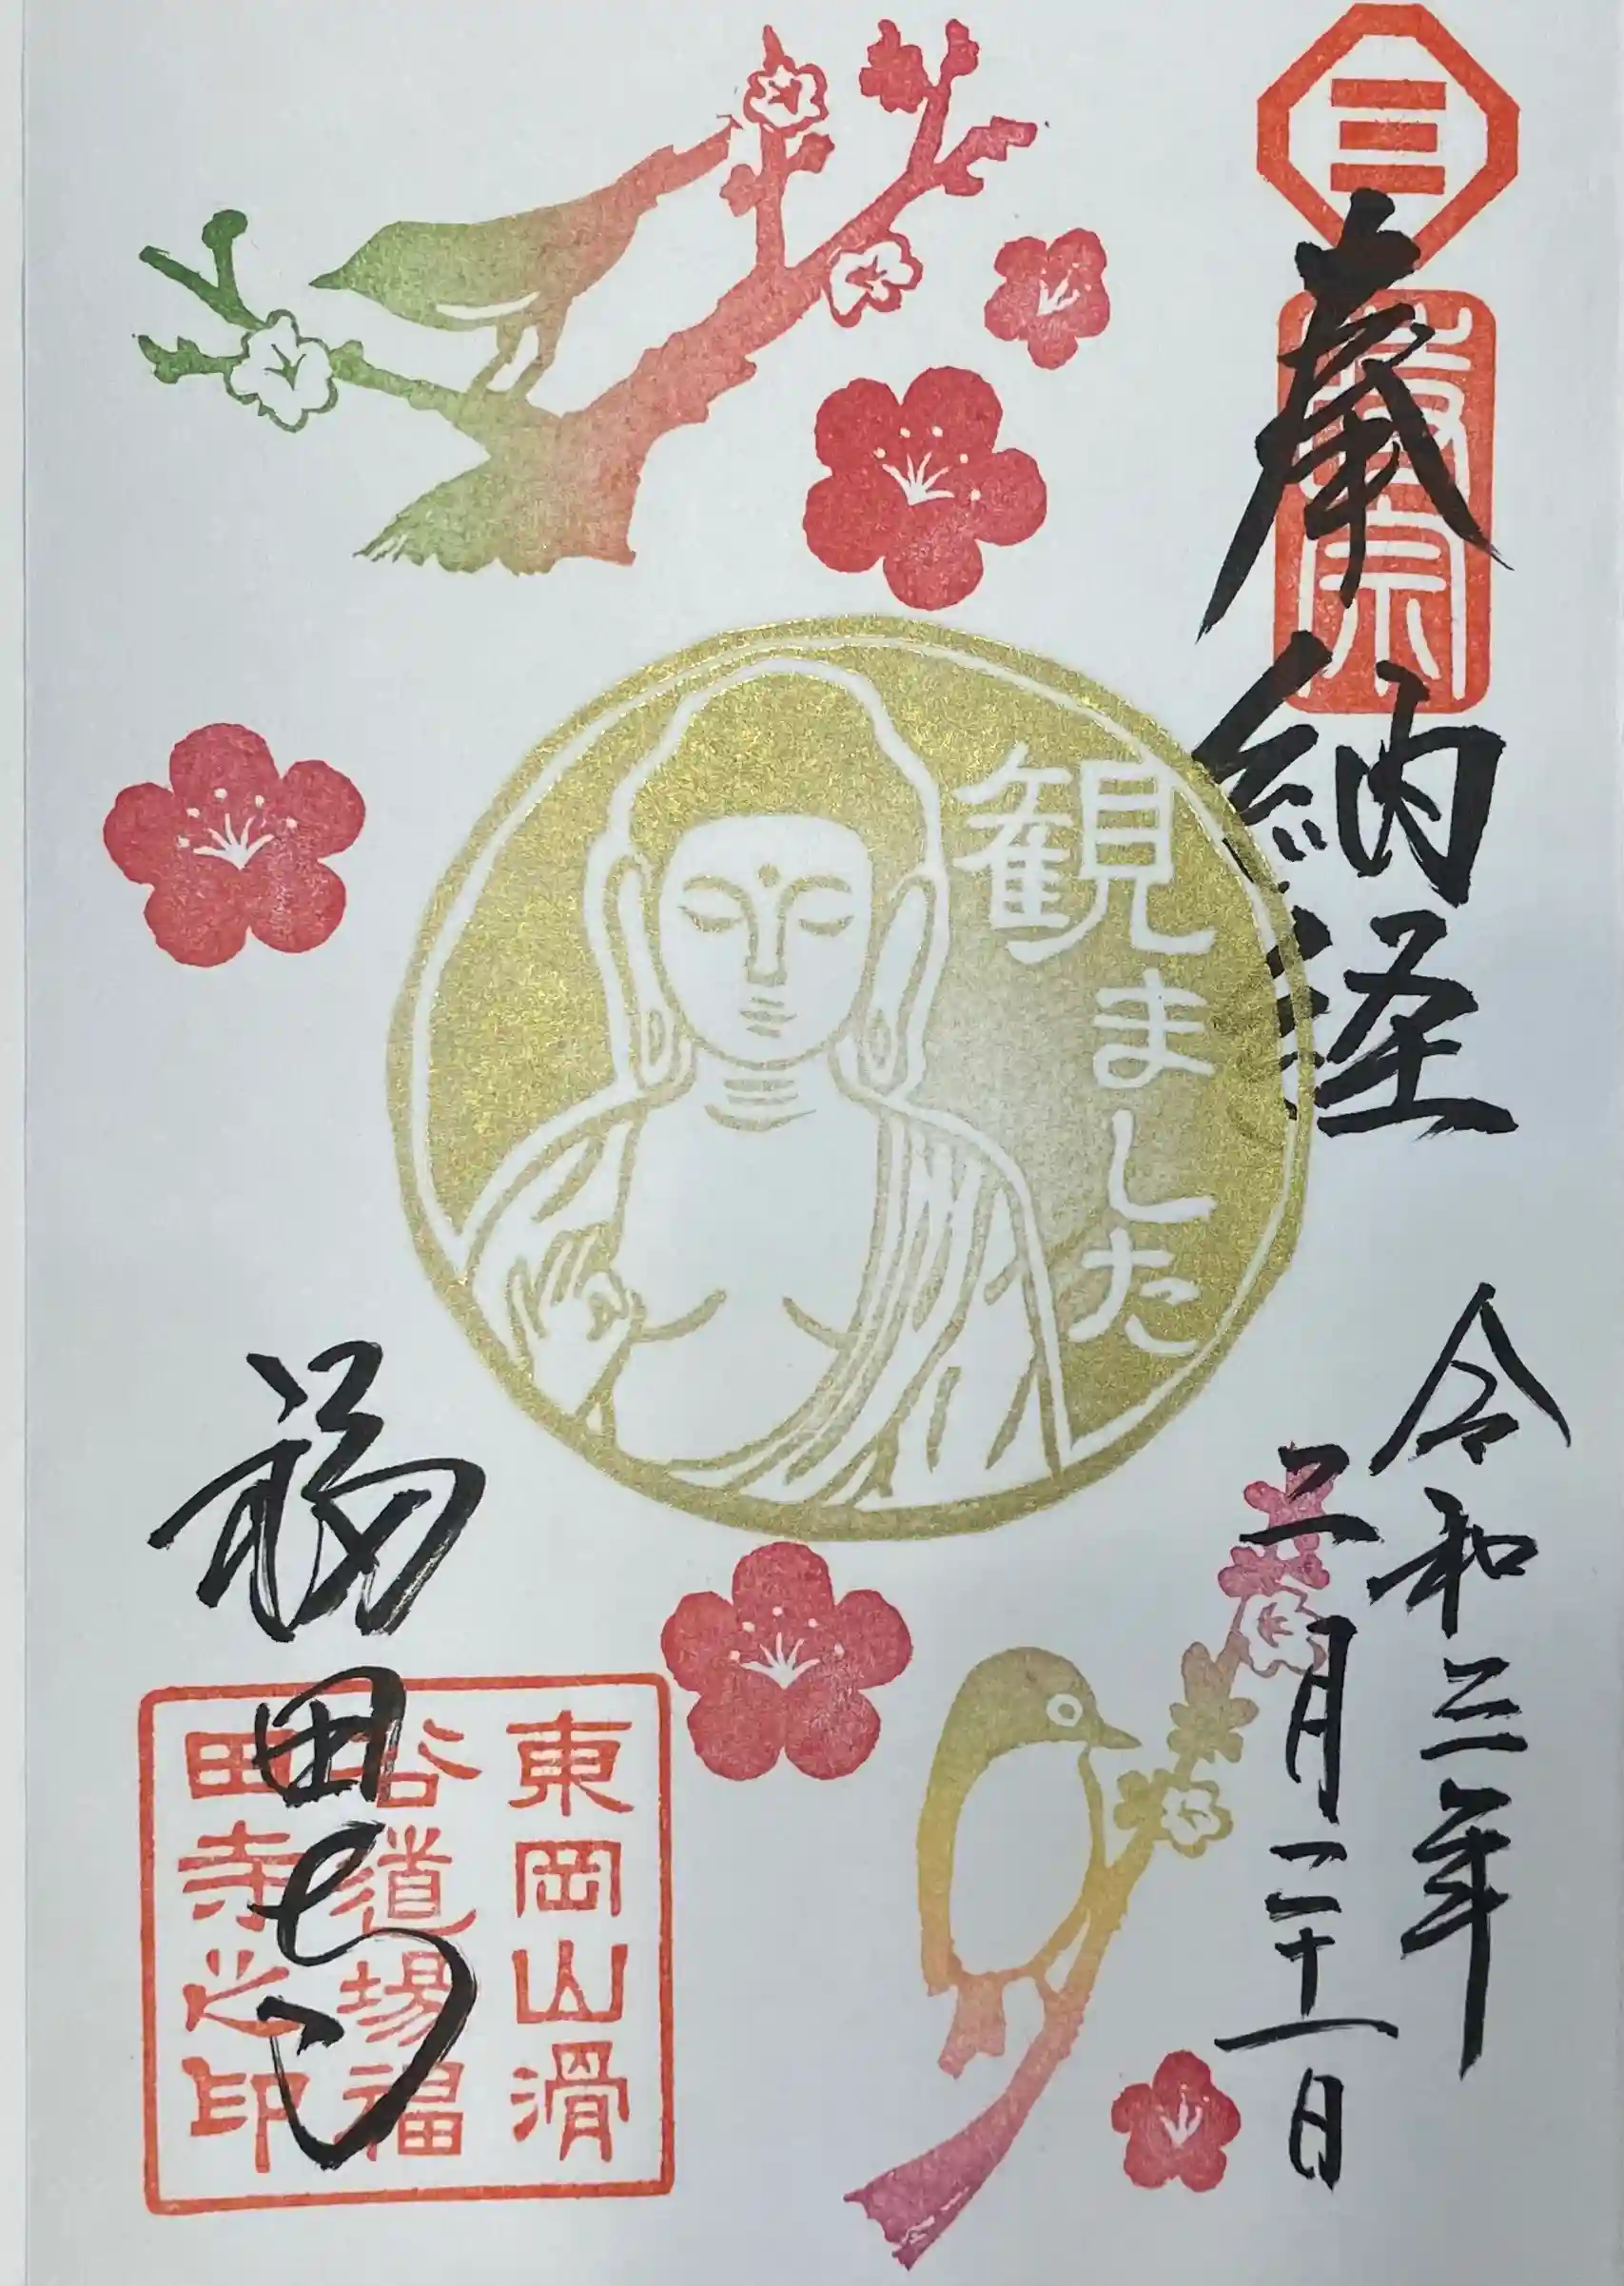 三
真宗
奉納経
令和三年
二月二十一日
観ました
福田寺
東岡山滑
谷道場福
田寺之印